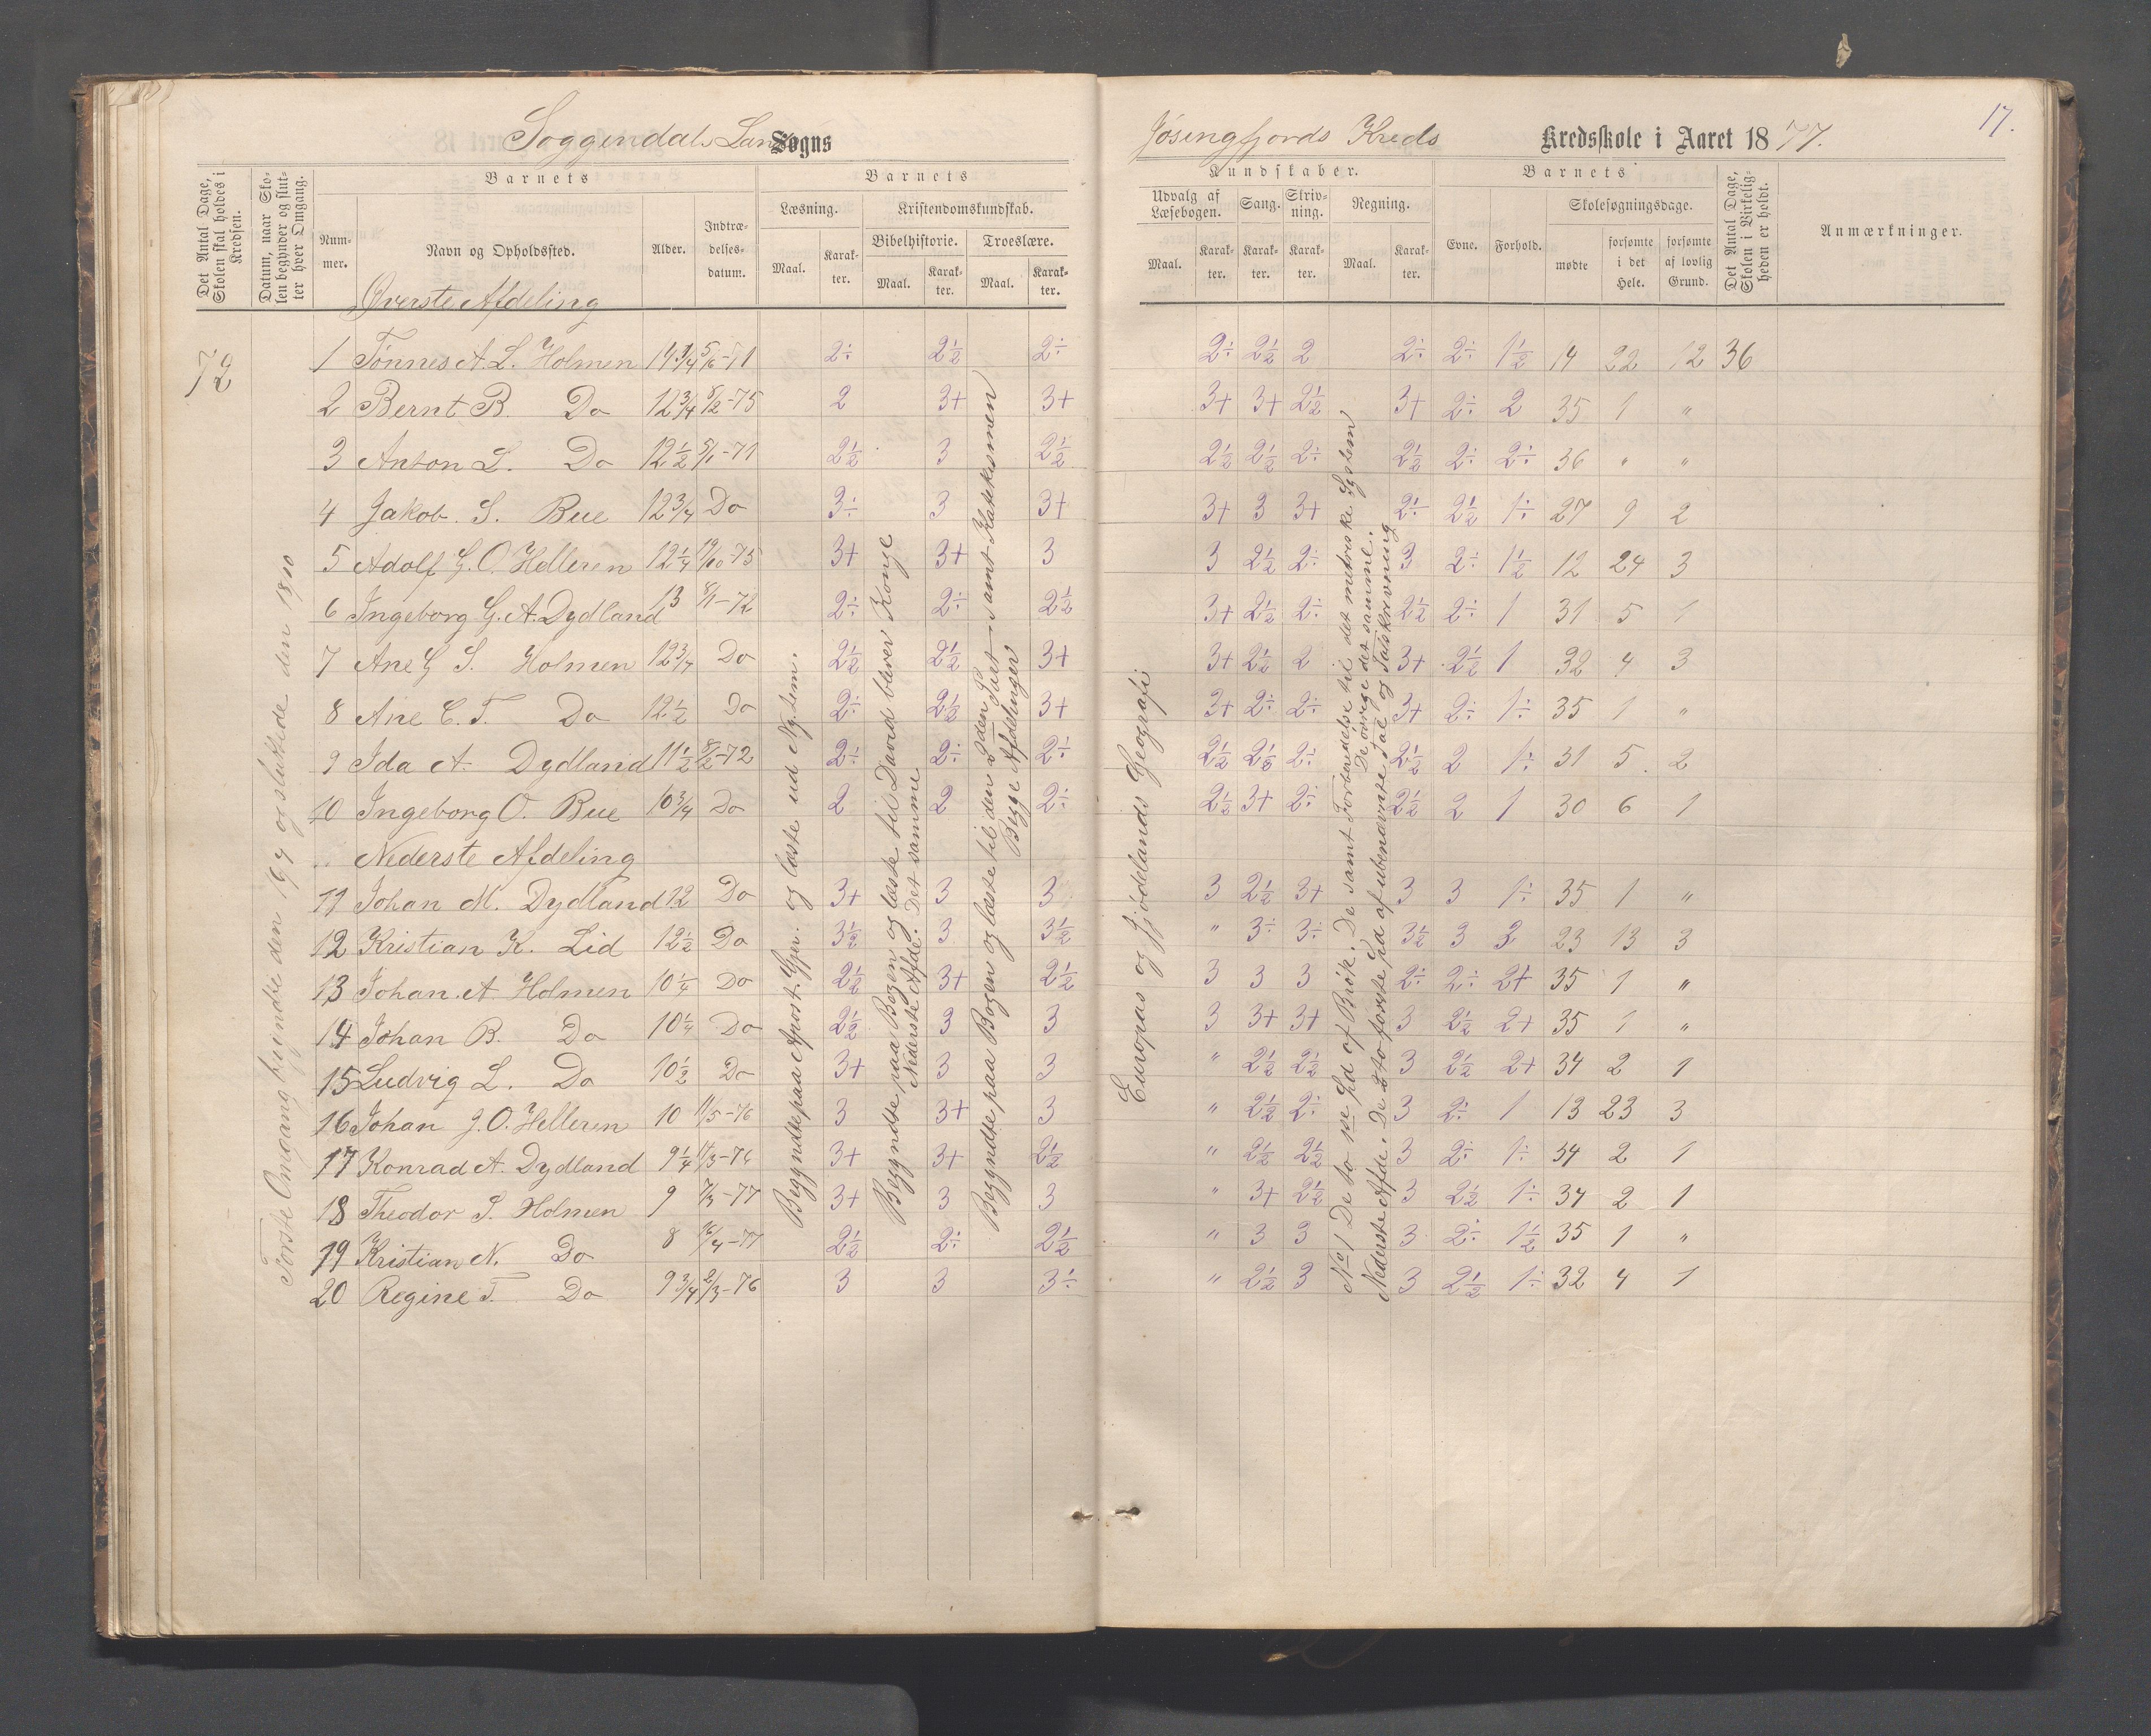 Soggendals Lands Sogns
Jøsingfjords Kreds Kredsskole i Aaret 1877.
17.
Det Antal Dage, Skolen skal holdes i Kredsen.
Datum, naar Skolen begynder og slutter hver Omgang.
Barnets
Nummer.
Navn og Opholdssted.
Alder.
Indtrædelsesdatum.
Barnets
Læsning.
Maal.
Karakter.
Kristendomskundskab.
Bibelhistorie.
Maal.
Karakter.
Troeslære.
Maal.
Karakter.
Kundskaber.
Udvalg af Læsebogen.
Maal.
Karakter.
Sang.
Karakter.
Skrivning.
Karakter.
Regning.
Maal.
Karakter.
Barnets
Evne.
Forhold.
Skolesøgningsdage.
mødte
forsømte i det Hele.
forsømte af lovlig Grund.
Det Antal Dage, Skolen i Virkeligheden er holdt.
Anmærkninger.
Øverste Afdeling
72
1 Tønnes A. L. Holmen 14 1/4 5/6-71 2÷ 2½ 2÷ 2÷ 2½ 2 2÷ 2÷ 1½ 14 22 12 36
2 Bernt B. Do 12 3/4 8/2-75 2 3+ 3+ 3+ 3+ 2½ 3+ 2÷ 2 35 1 "
3 Anton L. Do 12½ 5/1-71 2½ 3 2½ 2½ 2½ 2÷ 2½ 2÷ 2÷ 36 " "
4 Jakob. S. Bue 12 3/4 Do 3÷ 3 3+ 3+ 3 3+ 2÷ 2½ 1÷ 27 9 2
5 Adolf G. O. Helleren 12 1/4 19/10-75 3+ 3+ 3 3 2½ 2÷ 3 2÷ 1½ 12 24 3
6 Ingeborg G. A. Dydland 13 8/1-72 2÷ 2÷ 2½ 3+ 2½ 2÷ 2½ 2÷ 1 31 5 1
7 Ane G S. Holmen 12 3/4 Do 2½ 2½ 3+ 3+ 2½ 2 3+ 2½ 1 32 4 3
8 Ane C. T. Do 12½ Do 2÷ 2½ 3+ 3+ 2÷ 2÷ 3+ 2÷ 1÷ 35 1 "
9 Ida A. Dydland 11½ 8/2-72 2÷ 2÷ 2÷ 2½ 2½ 2÷ 2½ 2 1÷ 31 5 2
10 Ingeborg O. Bue 10 3/4 Do 2 2 2÷ 2½ 3+ 2÷ 2½ 2 1 30 6 1
Nederste Afdeling
11 Johan M. Dydland 12 Do 3+ 3 3 3 2½ 3+ 3 3 1÷ 35 1 "
12 Kristian K. Lid 12½ Do 3½ 3 3½ " 3÷ 3÷ 3½ 3 2 23 13 3
13 Johan. A Holmen 10 1/4 Do 2½ 3+ 2½ 3 3 3 2÷ 2÷ 2+ 35 1 "
14 Johan B. Do 10 1/4 Do 2½ 3 3 3 3+ 3+ 3 2½ 2+ 35 1 "
15 Ludvig L. Do 10½ Do 3+ 3 3 " 2½ 2½ 3 2½ 2+ 34 2 1
16 Johan J. O. Helleren 10 11/5-76 3 3+ 3 " 2½ 2÷ 3 2÷ 1 13 23 3
17 Konrad A. Dydland 9 1/4 11/3-76 3+ 3+ 2½ " 2½ 2½ 3 2÷ 1÷ 34 2 1
18 Theodor S. Holmen 9 7/3-77 3+ 3 3 " 3+ 2½ 3 2½ 1÷ 34 2 1
19 Kristian N. Do 8 16/4-77 2½ 2÷ 2½ " 3 3 3 2÷ 1½ 35 1 "
20 Regine T. Do 9 3/4 2/3-76 3 3 3÷ " 2½ 3 3 2½ 1÷ 32 4 1
Første Omgang begyndte den 19/4 og sluttede den 18/10
Begyndte paa Apost. Gjn. og læste ud Ny. Tem.
Begyndte paa Bogen og læste til David bliver Konge
Nederste Afde. Det samme
Begyndte paa Bogen og læste til den 2den Part samt Katekismen
Begge Afdelinger
Europas og Jjødelands Geografi
No 1 De to Spd af Brøk. De samt Forberedelse til det metriske System
De øvrige det samme.
Nederste Afde. De 2 to første Spd af ubenævnte Tal og Talskrivning